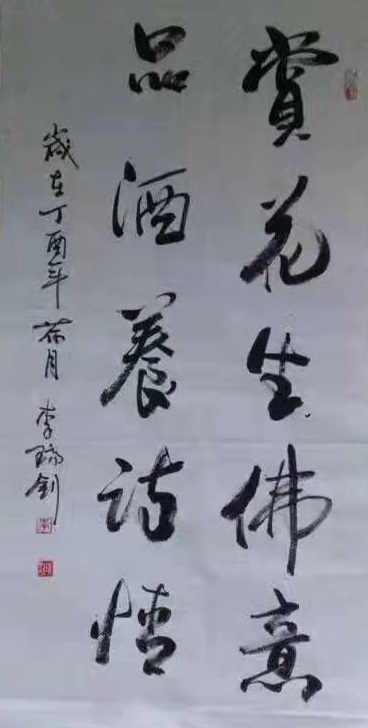 賞花生佛意
品酒養詩情
歲在丁酉年荷月李瑞劍